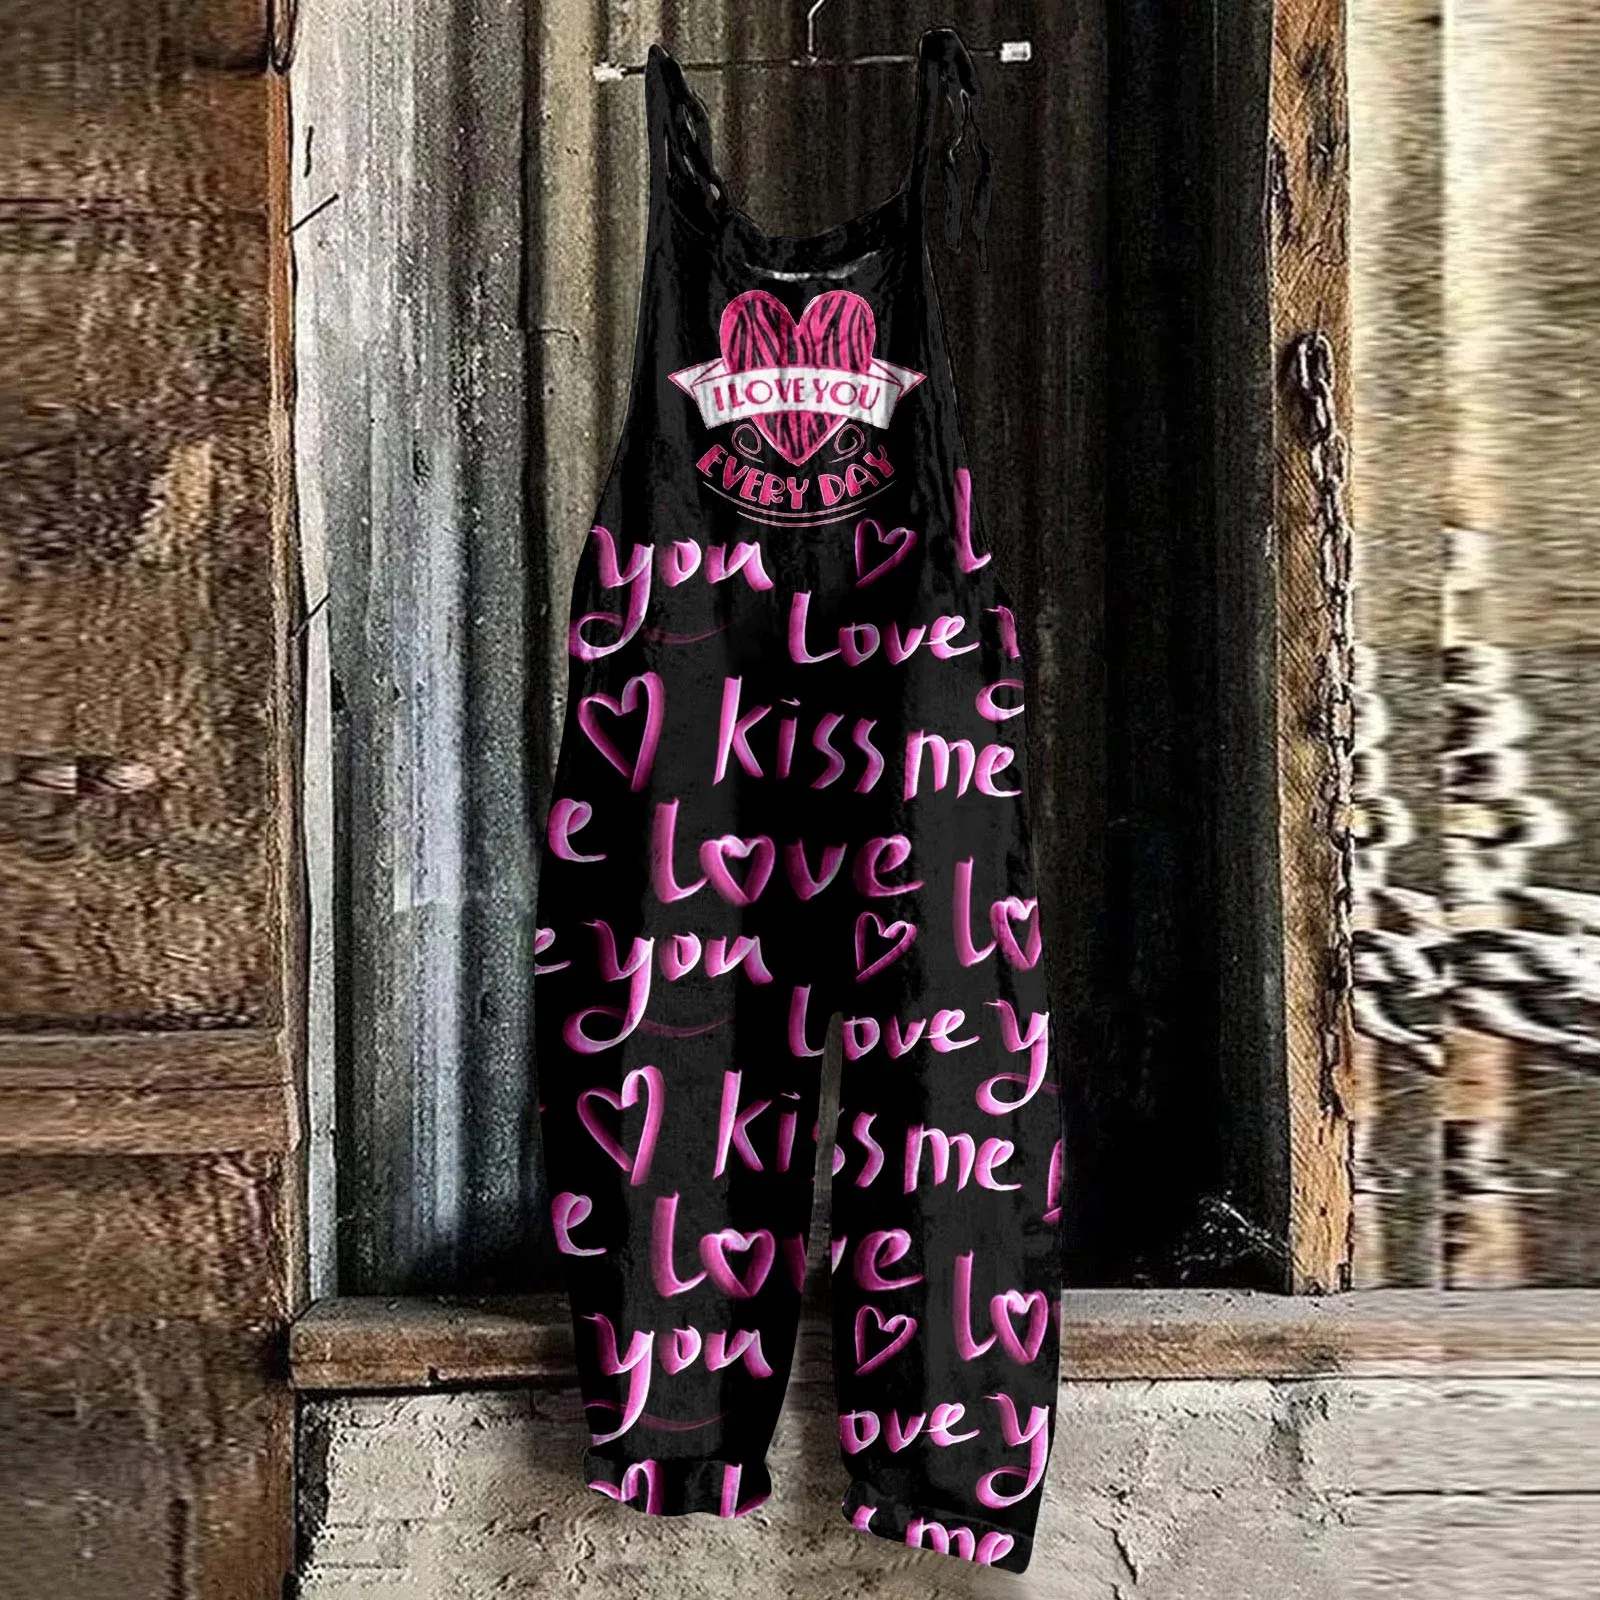 I LOVE YOU
EVERY DAY
you L
Love
kiss me
e Love
Lo
e you
Love y
kiss me
e Love
Lo
you
ove y
me